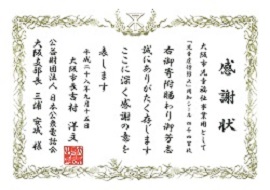 感謝状
大阪市児童福祉事業用として
各御寄附賜わり御芳志
誠にありがたく存じます
ここに深く感謝の意を
表します
平成二十八年九月十五日
大阪市長 吉村洋文
公益財団法人 日本公衆電話会
大阪支部長 三浦 安城 様